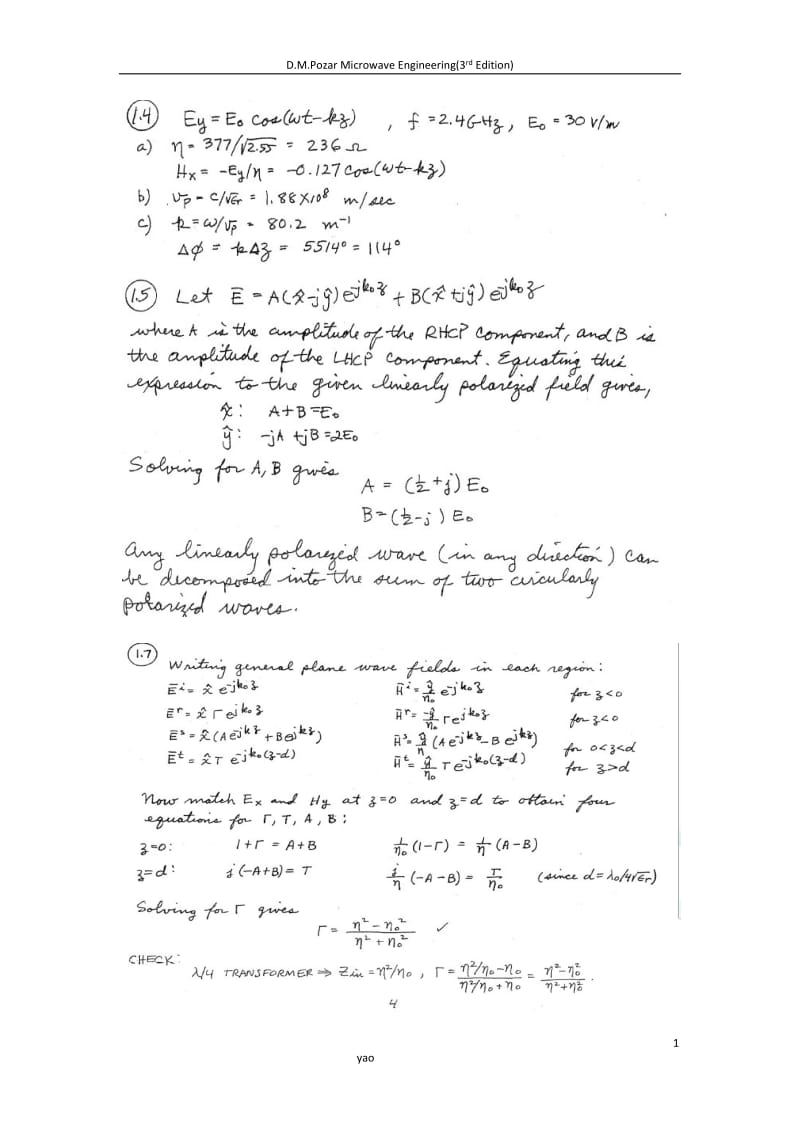 D.M.Pozar Microwave Engineering(3rd Edition)
1.4 Ey = E₀ cos(ωt-kz) , f = 2.4 GHz, E₀ = 30 V/m
a) η = 377/√2.55 = 236 Ω
Hx = -Ey/η = -0.127 cos(ωt-kz)
b) vp = c/√εr = 1.88 X10⁸ m/sec
c) k = ω/vp = 80.2 m⁻¹
Δφ = kΔz = 5514° = 114°
1.5 Let Ē = A(x̂-jŷ)e^-jk₀z + B(x̂+jŷ)e^-jk₀z
where A is the amplitude of the RHCP component, and B is
the amplitude of the LHCP component. Equating this
expression to the given linearly polarized field gives,
x̂: A+B = E₀
ŷ: -jA +jB = 2E₀
Solving for A, B gives
A = (½+j) E₀
B = (½-j) E₀
Any linearly polarized wave (in any direction) can
be decomposed into the sum of two circularly
polarized waves.
1.7
Writing general plane wave fields in each region:
Ēⁱ = x̂ e^-jk₀z H̄ⁱ = ŷ/η₀ e^-jk₀z for z<0
Ēʳ = x̂ Γ e^jk₀z H̄ʳ = -ŷ/η₀ Γ e^jk₀z for z<0
Ēˢ = x̂ (A e^-jkz + B e^jkz) H̄ˢ = ŷ/η (A e^-jkz - B e^jkz) for 0<z<d
Ēᵗ = x̂ T e^-jk₀(z-d) H̄ᵗ = ŷ/η₀ T e^-jk₀(z-d) for z>d
Now match Ex and Hy at z=0 and z=d to obtain four
equations for Γ, T, A, B:
z=0: 1+Γ = A+B 1/η₀ (1-Γ) = 1/η (A-B)
z=d: j(-A+B) = T j/η (-A-B) = T/η₀ (since d = λ₀/4√εr)
Solving for Γ gives
Γ = (η² - η₀²)/(η² + η₀²) ✓
CHECK:
λ/4 TRANSFORMER ⇒ Zin = η²/η₀ , Γ = (η²/η₀ - η₀)/(η²/η₀ + η₀) = (η²-η₀²)/(η²+η₀²) .
4
1
yao